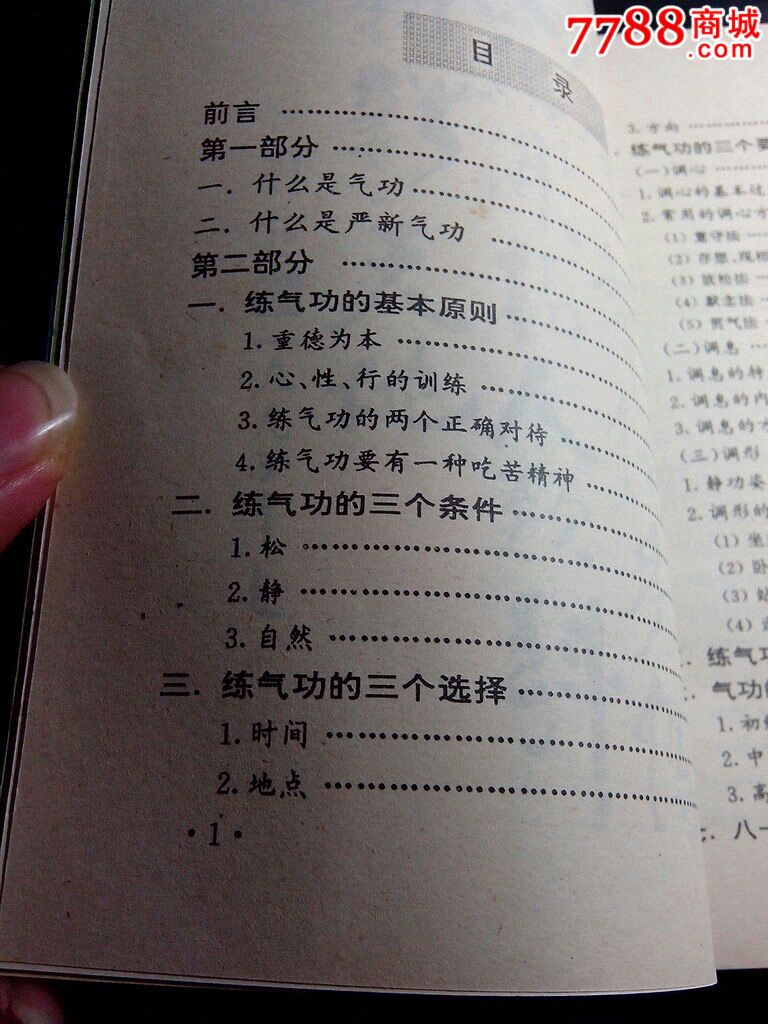 7788商城
.com
目 录
前言 ………………
第一部分 ………………
一. 什么是气功 ………………
二. 什么是严新气功 ………………
第二部分 ………………
一. 练气功的基本原则 ………………
1. 重德为本 ………………
2. 心、性、行的训练 ………………
3. 练气功的两个正确对待 ………………
4. 练气功要有一种吃苦精神 ………………
二. 练气功的三个条件 ………………
1. 松 ………………
2. 静 ………………
3. 自然 ………………
三. 练气功的三个选择 ………………
1. 时间 ………………
2. 地点 ………………
·1·
3. 方向 ………………
练气功的三个要
(一)调心 ………
1. 调心的基本过
2. 常用的调心方
(1) 意守法 …
(2) 存想、观想
(3) 放松法 …
(4) 默念法 …
(5) 贯气法 …
(二)调息 ……
1. 调息的特
2. 调息的内
3. 调息的方
(三)调形
1. 静功姿
2. 调形的
(1) 坐
(2) 卧
(3) 站
(4) 走
. 练气功
. 气功的
1. 初级
2. 中
3. 高
. 八一